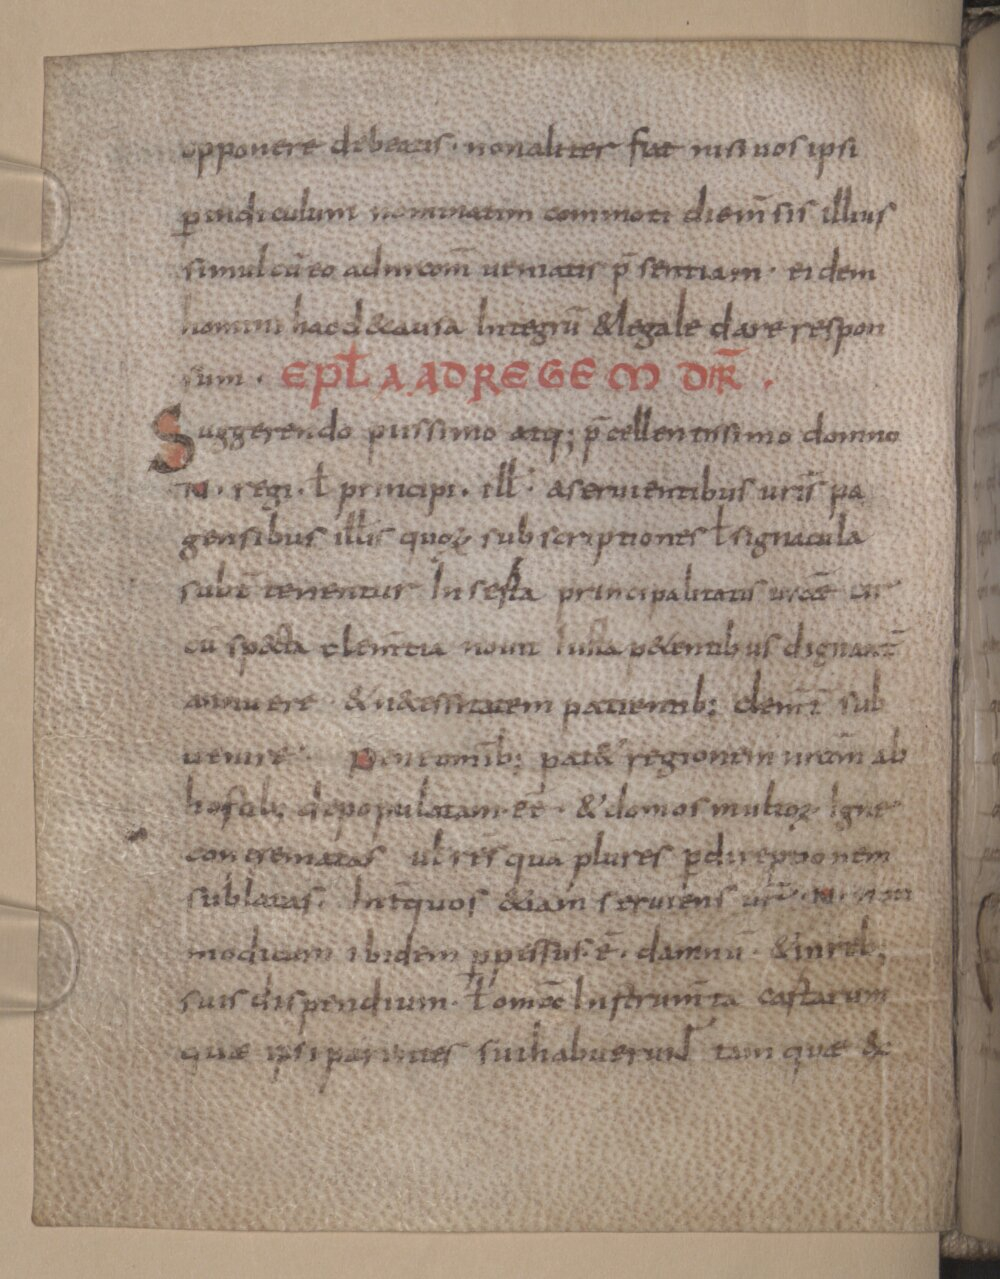 opponere debeatis · non aliter fiat nisi uos ipsi
p indiculum nominatim commoti diem̄ sis illius
simul cū eo ad nr̄om ueniatis p̄sentiam · eidem
homini haec &causa Integrū &legale dare respon
sum · EPŁA AD REGEM DR̄ ·
Suggerendo piissimo atq; p̄cellentissimo domno
N · regi · ł principi · ill · a seruientibus uris̄ pa
gensibus illis quoꝝ subscriptiones ł signacula
subt̄ tenentur Insessa principalitatis
cū sp&ta clem̄tia nouit Iusta p&entibus dignant̄
annuere &n&essitatem patientib; clem̄t̄ sub
uenire · Dum omīb; pat& regionem ur̄am ab
hostib; depopulatam eē · &domos multoꝝ Igne
concrematas ul res̄ quā plures p direptionem
sublatas · Int̄ quos &iam seruiens ur̄ · N · non
modicum ibidem ppessus · ē · damnū · &in reb;
suis dispendium · ł omc̄ Instrum̄ta cartarum
quæ ipsi parentes sui habuerunt tam quæ &